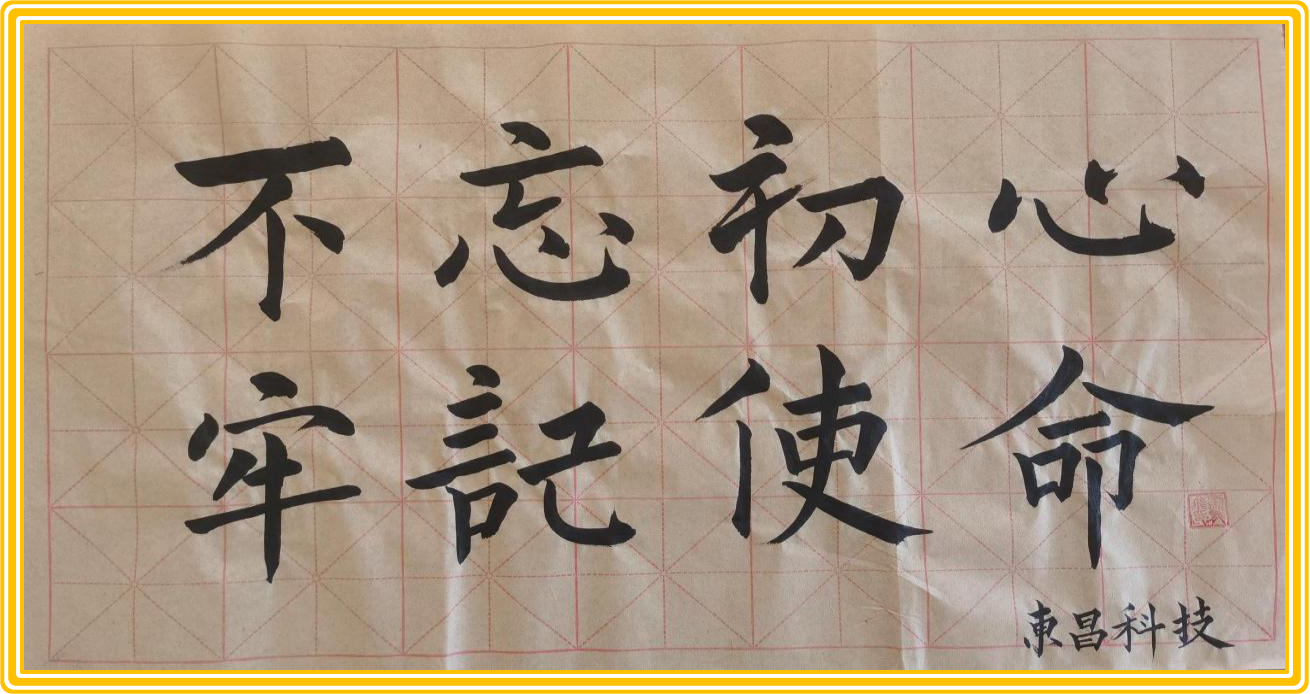 不忘初心
牢記使命
東昌科技